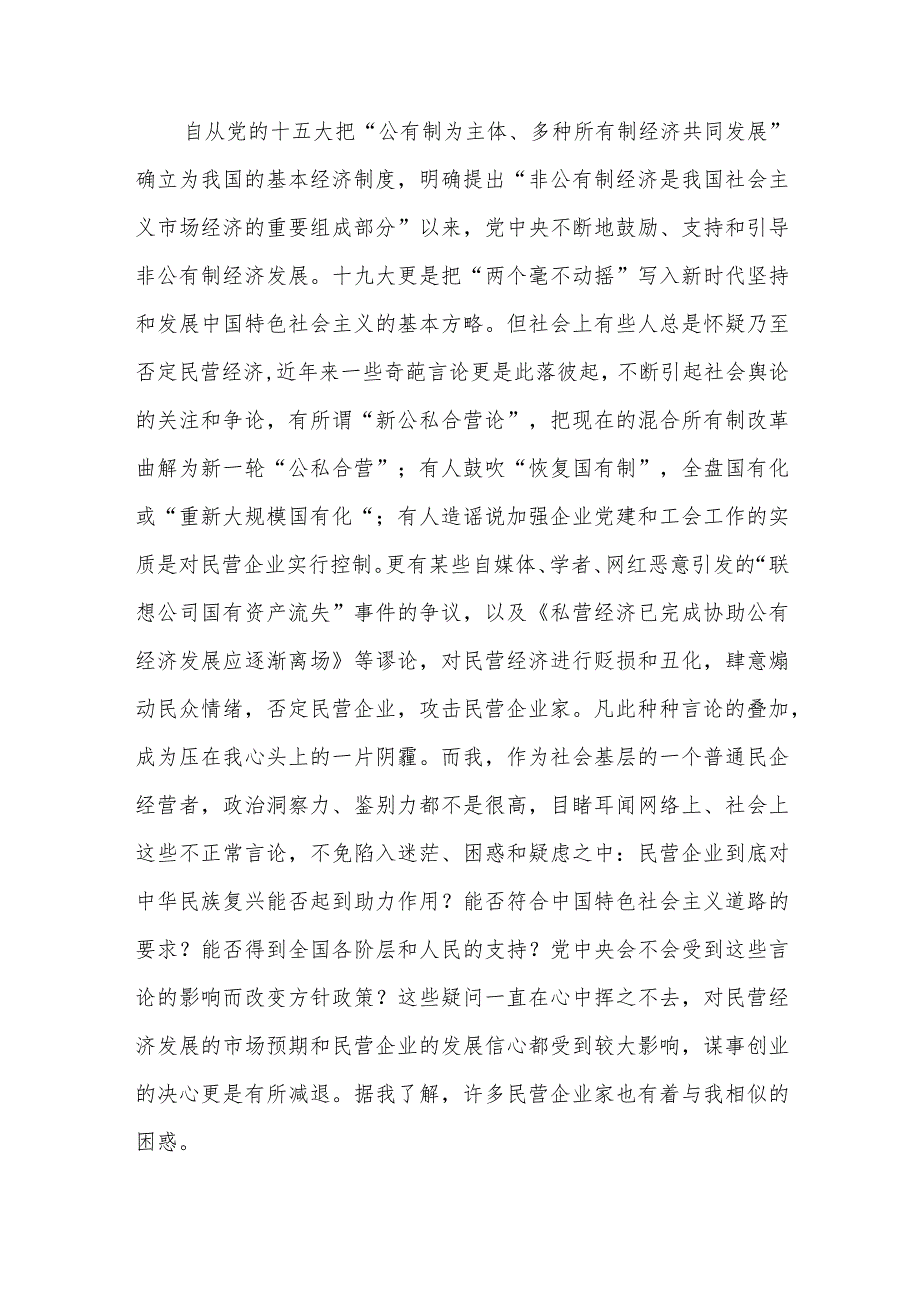 自从党的十五大把“公有制为主体、多种所有制经济共同发展”
确立为我国的基本经济制度，明确提出“非公有制经济是我国社会主
义市场经济的重要组成部分”以来，党中央不断地鼓励、支持和引导
非公有制经济发展。十九大更是把“两个毫不动摇”写入新时代坚持
和发展中国特色社会主义的基本方略。但社会上有些人总是怀疑乃至
否定民营经济,近年来一些奇葩言论更是此落彼起，不断引起社会舆论
的关注和争论，有所谓“新公私合营论”，把现在的混合所有制改革
曲解为新一轮“公私合营”；有人鼓吹“恢复国有制”，全盘国有化
或“重新大规模国有化“；有人造谣说加强企业党建和工会工作的实
质是对民营企业实行控制。更有某些自媒体、学者、网红恶意引发的“联
想公司国有资产流失”事件的争议，以及《私营经济已完成协助公有
经济发展应逐渐离场》等谬论，对民营经济进行贬损和丑化，肆意煽
动民众情绪，否定民营企业，攻击民营企业家。凡此种种言论的叠加，
成为压在我心头上的一片阴霾。而我，作为社会基层的一个普通民企
经营者，政治洞察力、鉴别力都不是很高，目睹耳闻网络上、社会上
这些不正常言论，不免陷入迷茫、困惑和疑虑之中：民营企业到底对
中华民族复兴能否起到助力作用？能否符合中国特色社会主义道路的
要求？能否得到全国各阶层和人民的支持？党中央会不会受到这些言
论的影响而改变方针政策？这些疑问一直在心中挥之不去，对民营经
济发展的市场预期和民营企业的发展信心都受到较大影响，谋事创业
的决心更是有所减退。据我了解，许多民营企业家也有着与我相似的
困惑。